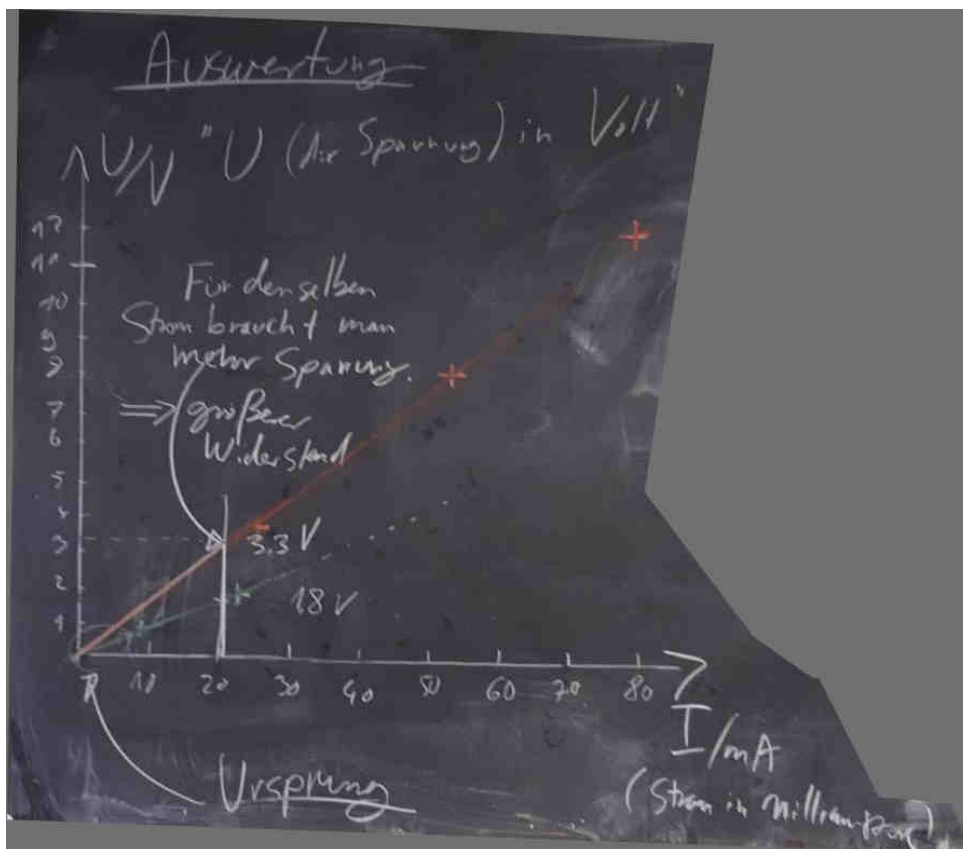 Auswertung
U/V "U (die Spannung) in Volt"
12
11
10
9
8
7
6
5
4
3
2
1
Für denselben
Strom braucht man
mehr Spannung.
⇒ großer
Widerstand
3.3 V
1.8 V
10 20 30 40 50 60 70 80
I/mA
(Strom in Milliampere)
Ursprung